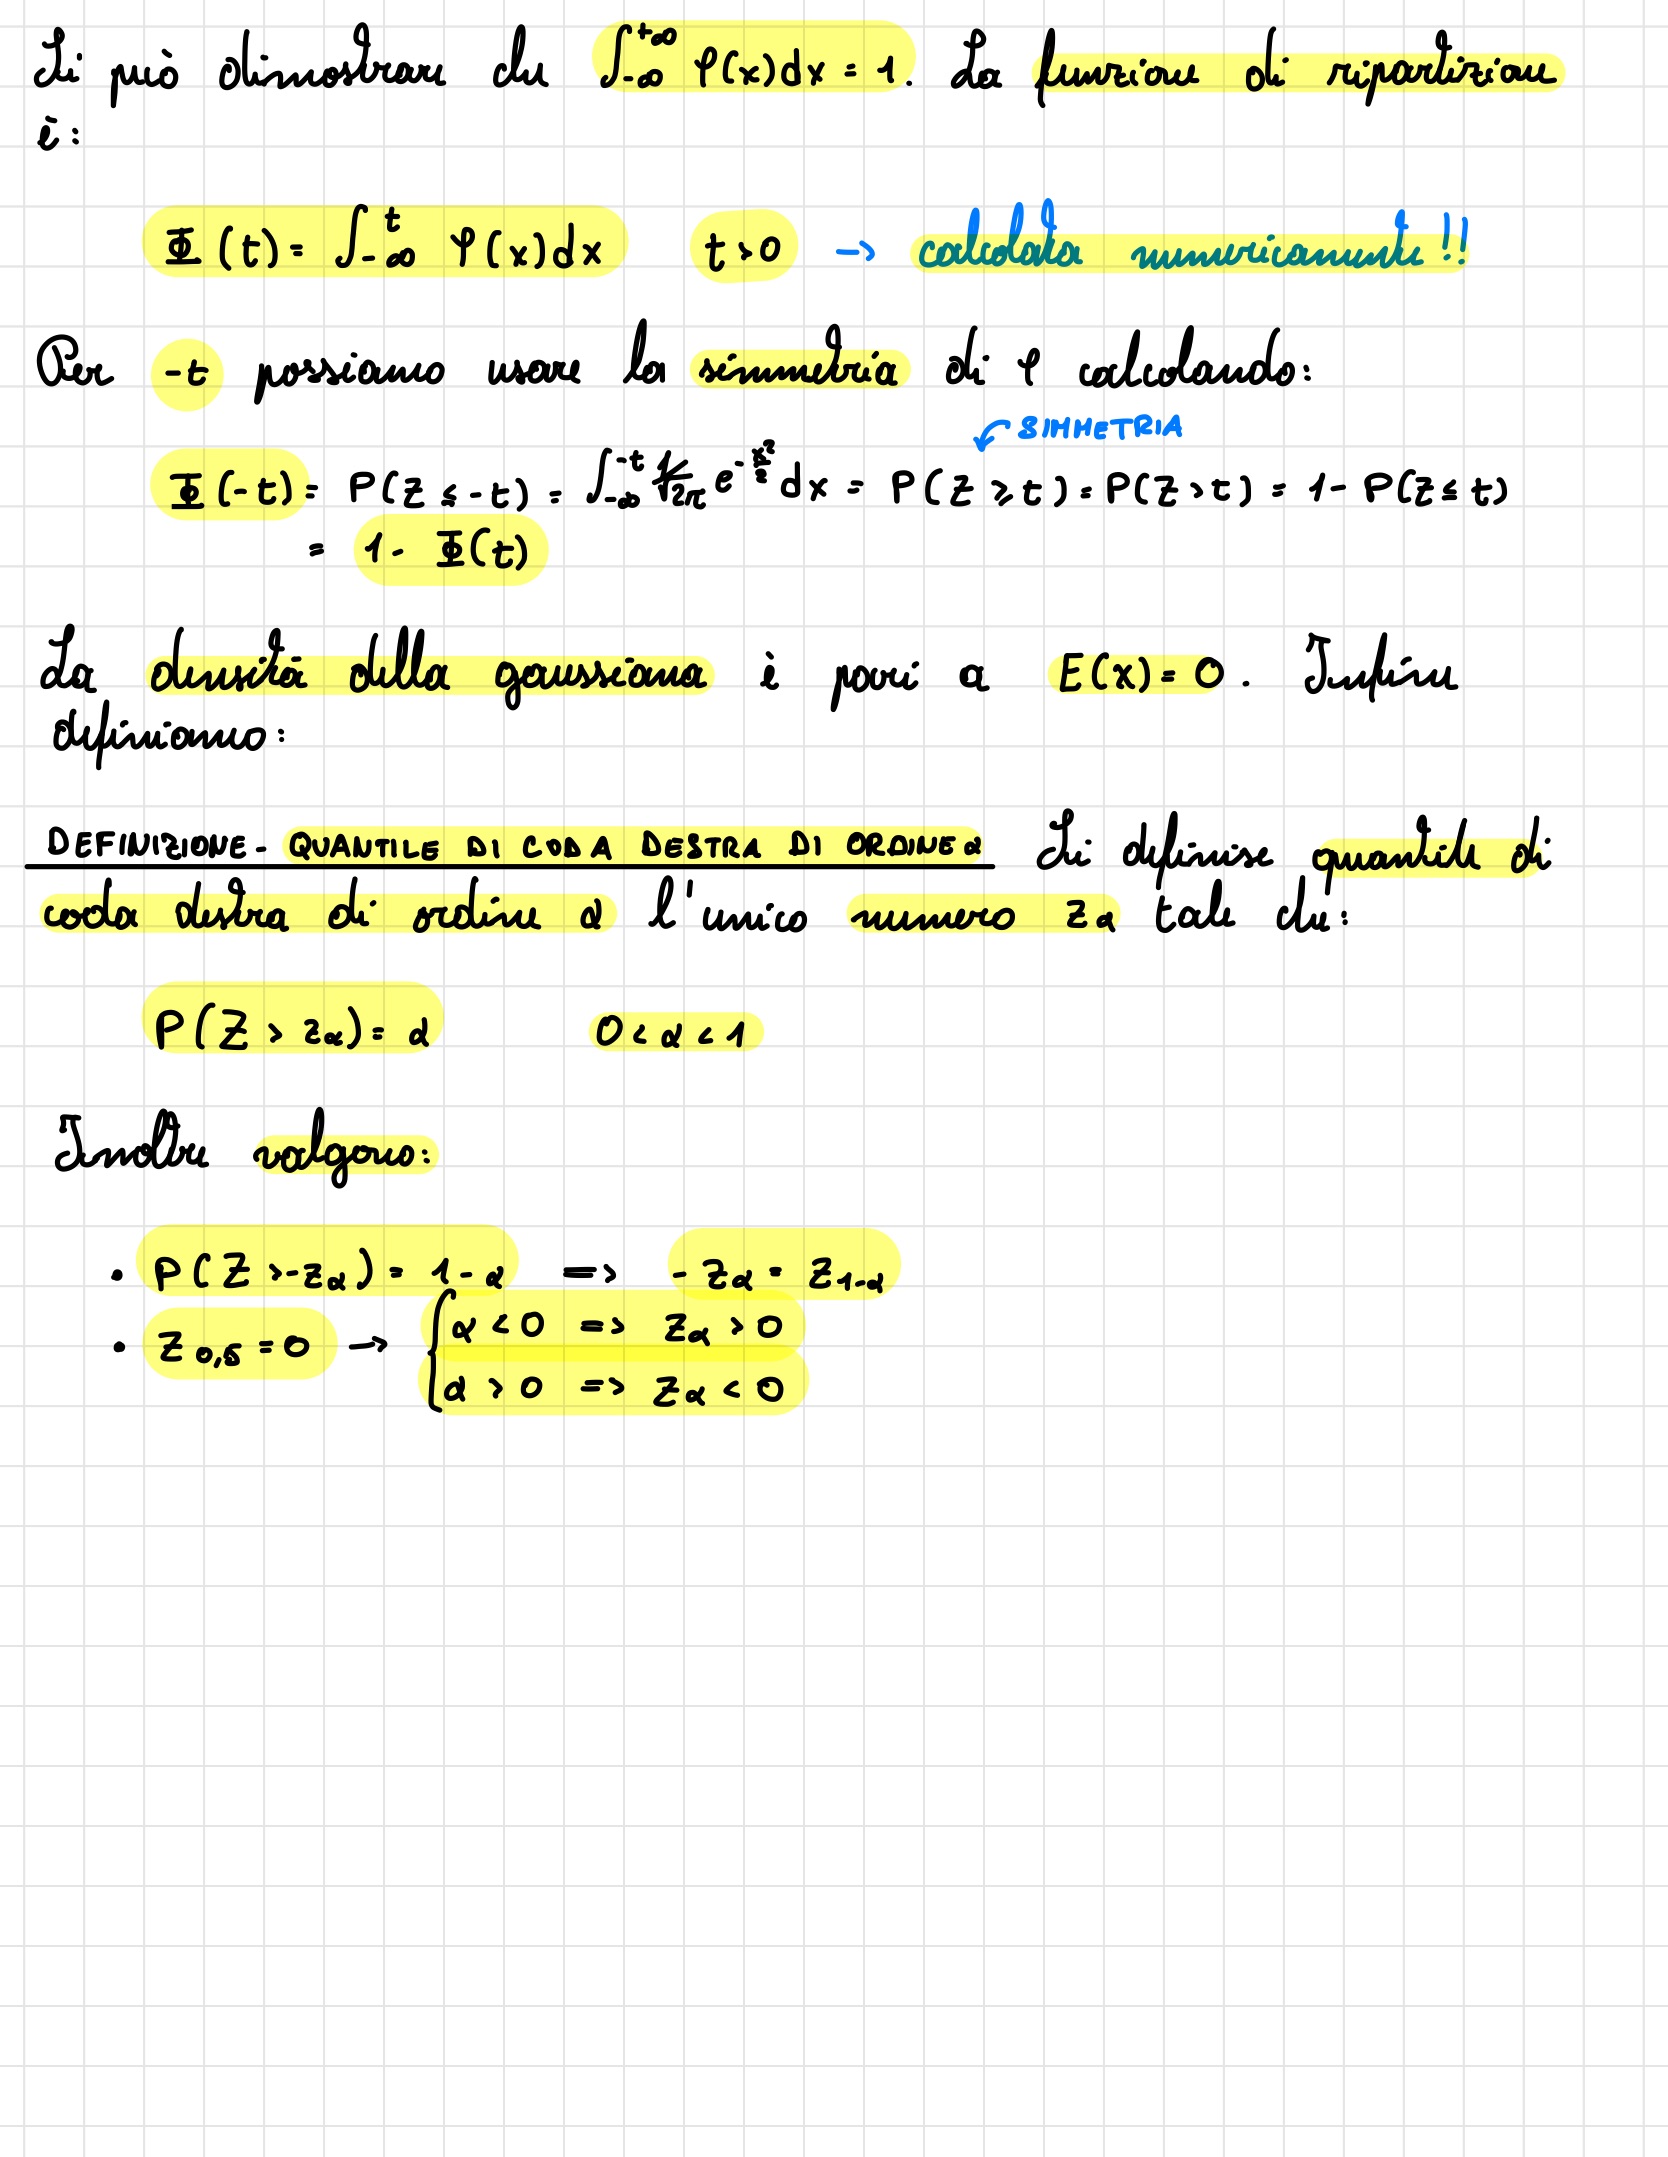 Si può dimostrare che ∫_{-∞}^{+∞} φ(x)dx = 1. La funzione di ripartizione
è:
Φ(t) = ∫_{-∞}^{t} φ(x)dx t > 0 → calcolata numericamente!!
Per -t possiamo usare la simmetria di φ calcolando:
SIMMETRIA
Φ(-t) = P(Z ≤ -t) = ∫_{-∞}^{-t} 1/√2π e^{-x²/2} dx = P(Z ≥ t) = P(Z > t) = 1 - P(Z ≤ t)
= 1 - Φ(t)
La densità della gaussiana è pari a E(X) = 0. Infine
definiamo:
DEFINIZIONE - QUANTILE DI CODA DESTRA DI ORDINE α Si definisce quantile di
coda destra di ordine α l'unico numero z_α tale che:
P(Z > z_α) = α 0 < α < 1
Inoltre valgono:
• P(Z > -z_α) = 1 - α => -z_α = z_{1-α}
• z_{0,5} = 0 → { α < 0 => z_α > 0
α > 0 => z_α < 0